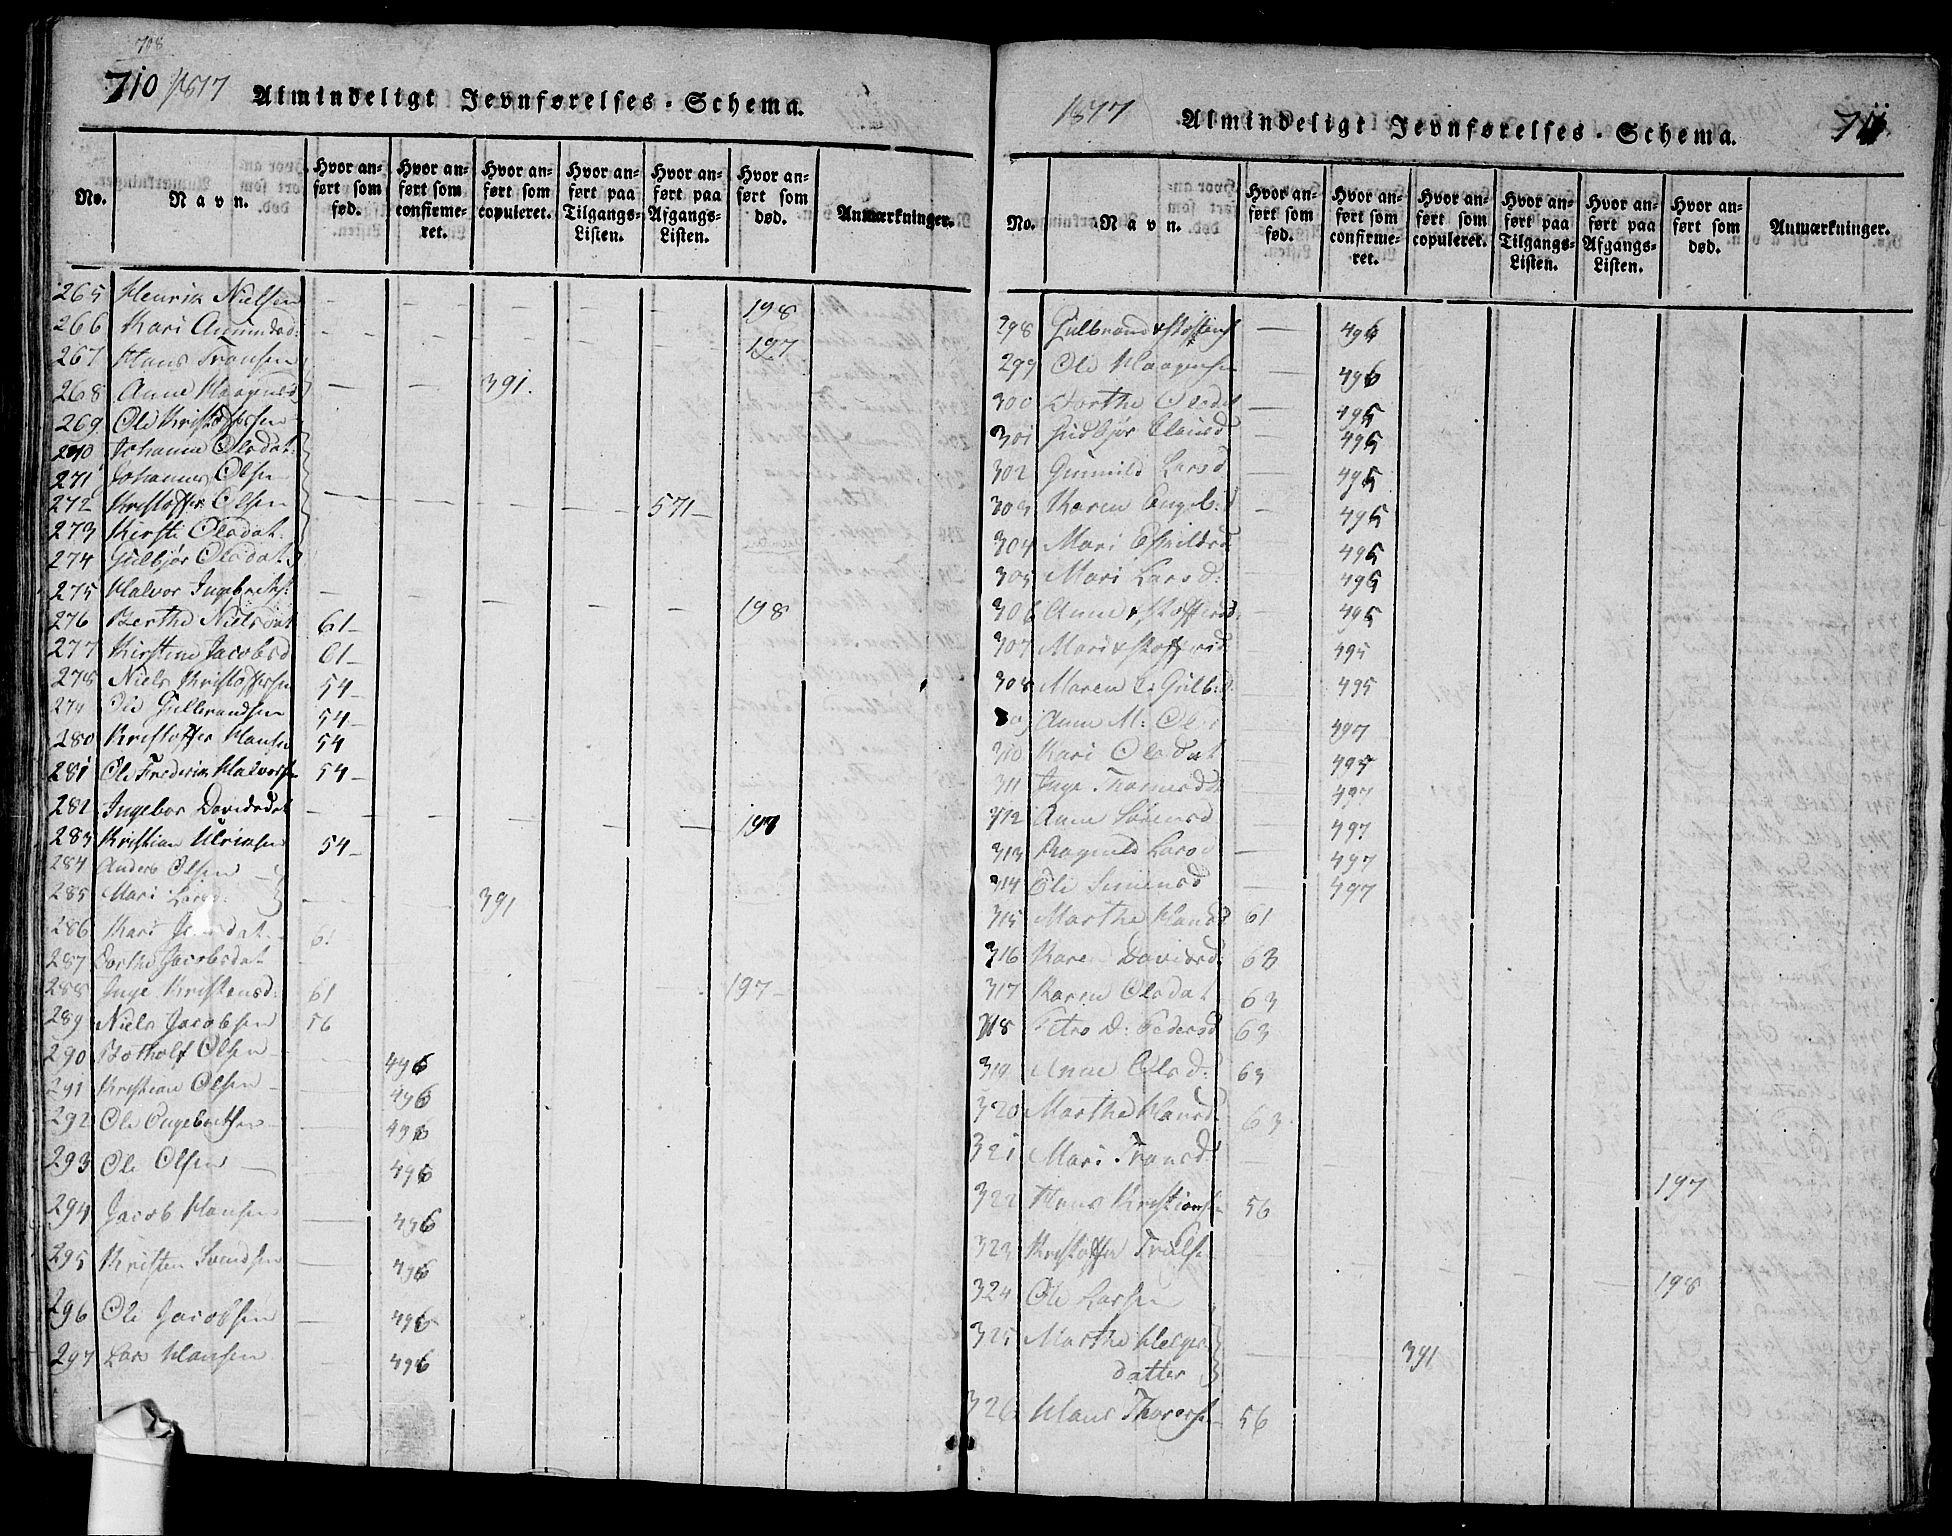 708
710 1817 Almindeligt Jevnførelses-Schema.
No. Navn. Hvor anført som fød. Hvor anført som confirmeret. Hvor anført som copuleret. Hvor anført paa Tilgangs-Listen. Hvor anført paa Afgangs-Listen. Hvor anført som død. Anmærkninger.
265 Henrik Nielsen — — — — — 198
266 Kari Amundsd: — — — — — 197
267 Hans Transen
268 Anne Haagensd — — 391.
269 Ole Kristoffersen
270 Johanne Olsdat:
271 Johannes Olsen
272 Kristoffer Olsen — — — — 571—
273 Kirsti Olsdat:
274 Gulbjør Olsdat:
275 Halvor Ingebrets: — — — — — 198
276 Berthe Nielsdat 61—
277 Kirstine Jacobsd 61—
278 Niels Kristoffersen 54—
279 Ole Gulbrandsen 54—
280 Kristoffer Hansen 54
281 Ole Frederik Halvorsen 54—
282 Ingebor Davidsdat — — — — — 197
283 Kristian Ulriksen 54—
284 Anders Olsen —
285 Mari Larsd: — — 391
286 Kari Jensdat. 61
287 Dorthe Jacobsdat
288 Inge Kristensd: 61 — 197—
289 Niels Jacobsen 56
290 Botholf Olsen — 496
291 Kristian Olsen — 496
292 Ole Engebretsen — 496
293 Ole Olsen — 496
294 Jacob Hansen — 496
295 Kristen Svendsen — 496
296 Ole Jacobsen — 496
297 Lars Hansen 496
1817 Almindeligt Jevnførelses-Schema. 711
No. Navn. Hvor anført som fød. Hvor anført som confirmeret. Hvor anført som copuleret. Hvor anført paa Tilgangs-Listen. Hvor anført paa Afgangs-Listen. Hvor anført som død. Anmærkninger.
298 Gulbrand — 496
299 Ole Haagensen — 496
300 Dorthe Olsdat — 495
301 Gudbjør Clausd — 495
302 Gunnild Larsd — 495
303 Karen Engelb: — 495
304 Mari — 495
305 Mari Larsd: — 495
306 Anne — 495
307 Mari — 495
308 Maren L: Gulb:d. — 495
309 Anne M: Ols — 497
310 Kari Olsdat 495
311 Inge Thomesdat 497
312 Anne Sørensd 497
313 Ragnild Larsd — 497
314 Oli Simensd — 497
315 Marthe Hansd 61
316 Karen Davidsd: 63
317 Karen Olsdat 63
318 Petro D: Pedersd 63
319 Anne Olsd: 63
320 Marthe Hansd: 63
321 Mari Transd — — — — — 197
322 Hans Kristiansen 56
323 Kristoffer Trulsen — — — — — 198
324 Ole Larsen
325 Marthe Helges
datter — — 391
326 Hans Thoresen 56